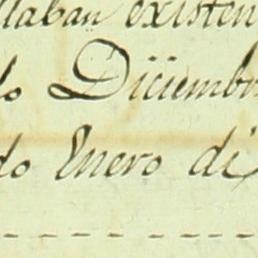 llaban existen
do Diciembr
do Enero di